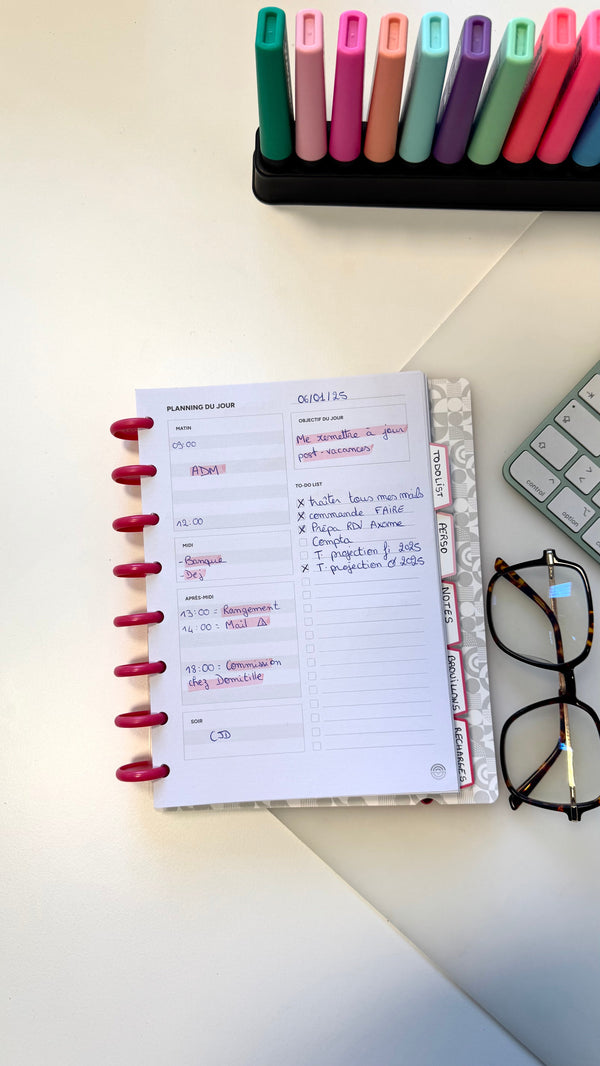 PLANNING DU JOUR
06/01/25
MATIN
09:00
ADM
12:00
MIDI
- Banque
- Dej
APRÈS-MIDI
13:00 = Rangement
14:00 = Mail ⚠
18:00 = Commission
chez Domitille
SOIR
CJD
OBJECTIF DU JOUR
Me remettre à jour
post-vacances
TO-DO LIST
x traiter tous mes mails
x commande FAIRE
x Prépa RDV Axome
Compta
T. projection fi 2025
x T. projection 2025
TODO LIST
PERSO
NOTES
BROUILLONS
RECHARGES
control
option